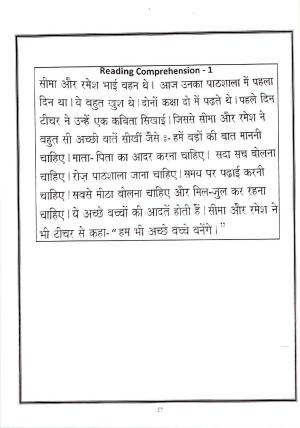 Reading Comprehension - 1
सीमा और रमेश भाई बहन थे। आज उनका पाठशाला में पहला
दिन था। वे बहुत खुश थे। दोनों कक्षा दो में पढ़ते थे। पहले दिन
टीचर ने उन्हें एक कविता सिखाई। जिससे सीमा और रमेश ने
बहुत सी अच्छी बातें सीखीं जैसे ः- हमें बड़ों की बात माननी
चाहिए। माता- पिता का आदर करना चाहिए। सदा सच बोलना
चाहिए। रोज़ पाठशाला जाना चाहिए। समय पर पढ़ाई करनी
चाहिए। सबसे मीठा बोलना चाहिए और मिल-जुल कर रहना
चाहिए। ये अच्छे बच्चों की आदतें होती हैं। सीमा और रमेश ने
भी टीचर से कहा- “ हम भी अच्छे बच्चे बनेंगे। ”
57